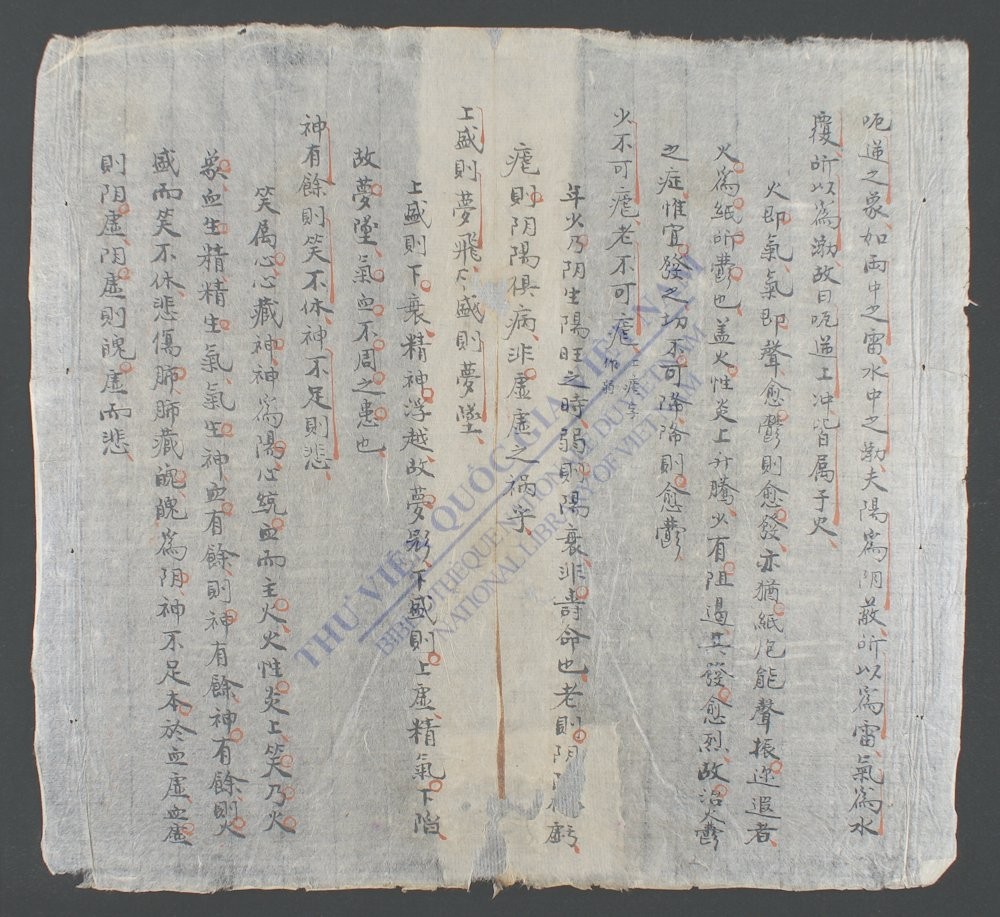 呃逆之象如雨中之雷水中之勃夫陽為阴蔽所以為雷氣為水
覆所以為渤故曰呃逆上冲皆属于火
火即氣氣即聲愈鬱則愈發亦猶紙炮能聲振迩遐者
火為紙所鬱也盖火性炎上升騰少有阻遏其發愈烈故治火鬱
之症惟宜發之切不可降降則愈鬱
少不可瘧老不可瘧
年少乃阴生陽旺之時弱則陽衰非壽命也老則阴虧
瘧則阴陽俱病非虚虚之禍乎
上盛則夢飛下盛則夢墜
上盛則下衰精神浮越故夢影下盛則上虚精氣下陷
故夢墜氣血不周之患也
神有餘則笑不休神不足則悲
笑属心心藏神神為陽心統血而主火火性炎上笑乃火
象血生精精生氣氣生神血有餘則神有餘神有餘則火
盛而笑不休悲傷肺肺藏魄魄為阴神不足本於血虚血虚
則阴虚阴虚則魄虚而悲
THƯ VIỆN QUỐC GIA VIỆT NAM
BIBLIOTHEQUE NATIONALE DU VIETNAM
NATIONAL LIBRARY OF VIETNAM